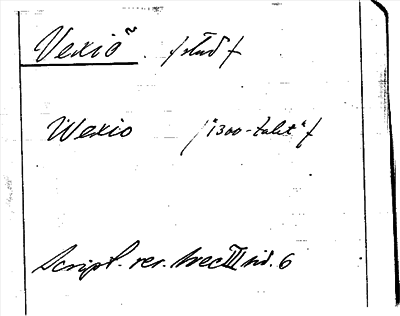 Vexio~ . /stad/
Wexio /"1300-talet"/
Script. rer. svec III sid. 6